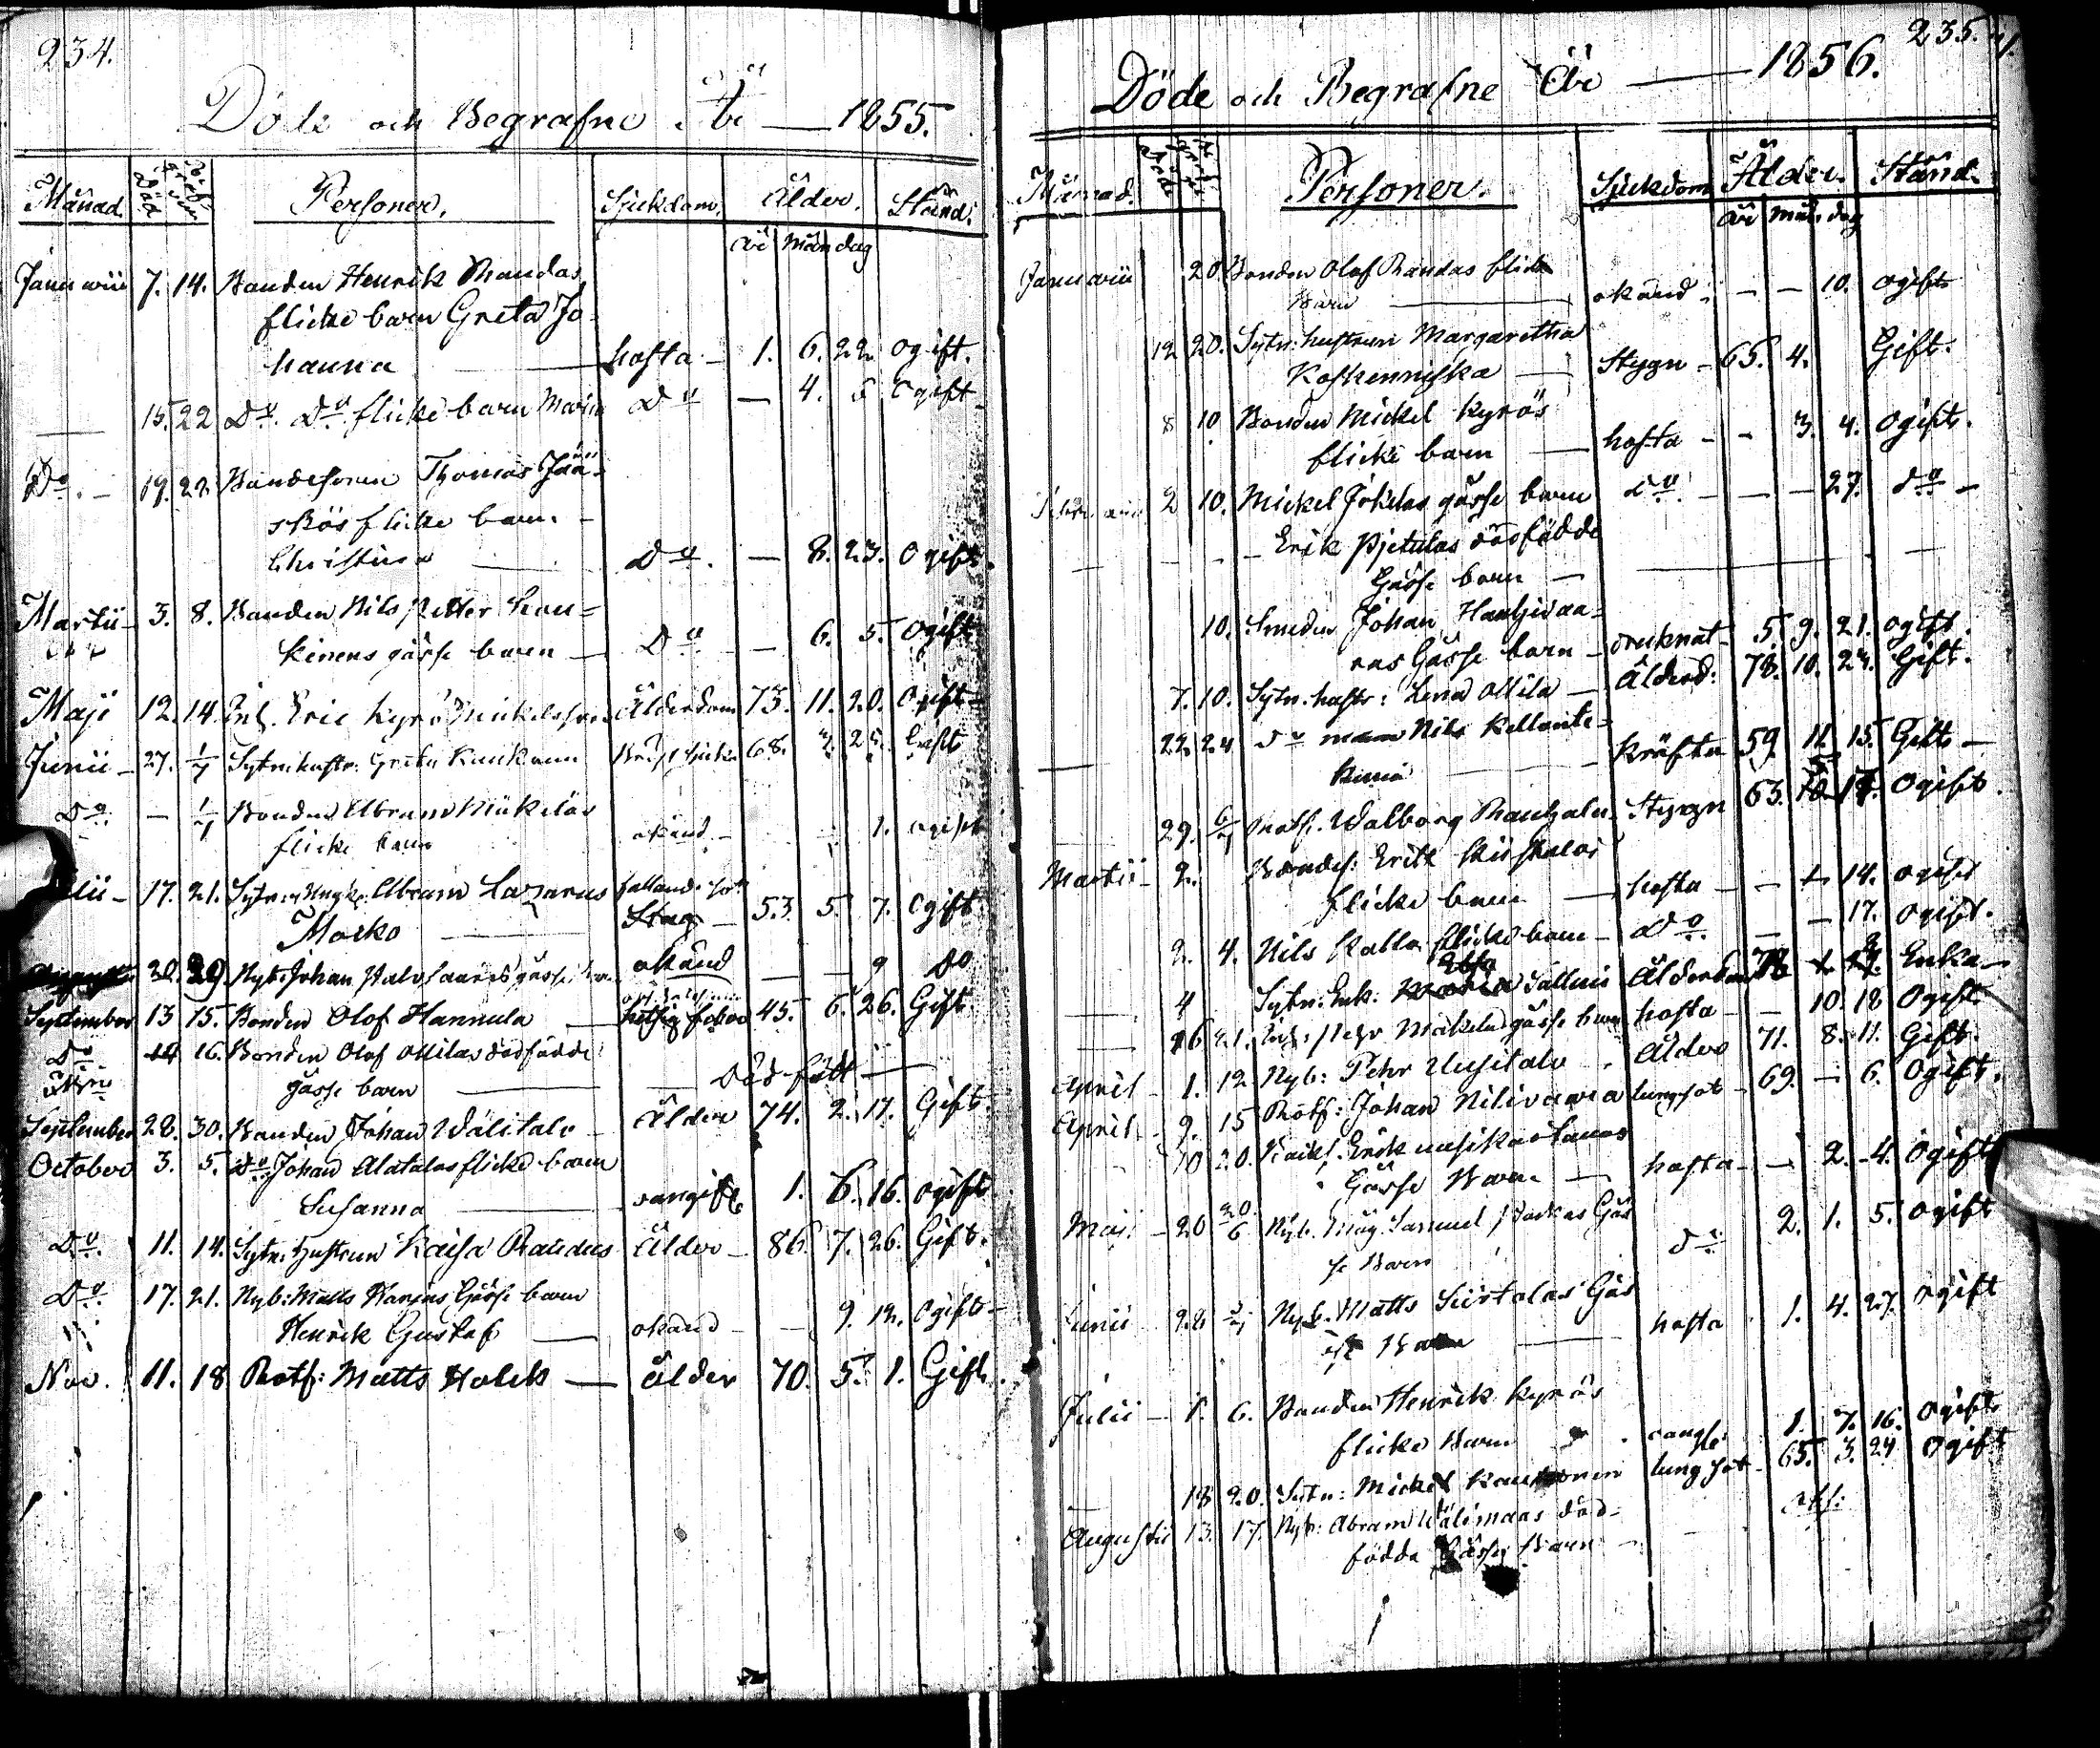 234.
Döde och Begrafne År — 1855.
Månad. Död Personer. Sjukdom. Ålder. Stånd.
År Mån dag
Januarii 7. 14. Bonden Henrik Raudas
flicke barn Greta Jo-
hanna — hosta — 1. 6. 22. ogift.
— 15. 22 Do. Do. flicke barn Maria Do — 4. 5 Ogift
Do. — 19. 22 Bondesonen Thomas Jää-
skös flicke barn
Christina Do. — 8. 23. Ogift.
Martii — 3. 8. Bonden Nils Petter
kinens gåsse barn — Do — 6. 5. Ogift
Maji 12. 14. Inh. Eric Kyrö Mickelsson Ålderdom 73. 11. 20. Ogift
Junii — 27. 1/7 Sytn. hustr: Greta 68. Gift
Do. — 1/7 Bonden Abram Mickeläs
flicke barn okänd — 1. ogift
17. 21. Sytn. Abram Lazarus fallande sot
Marko — Slag — 53. 5. 7. Ogift
30. 29. Nyb. Johan Palosaaris gåsse okänd — — 9 Do
September 13 15. Bonden Olof Hannula — hetsig feber 45. 6. 26. Gift
Do 14 16. Bonden Olof Ollilas dödfödde
gåsse barn — Död född —
September 28. 30. Bonden Johan Wälitalo — Ålder 74. 2. 17. Gift.
October 3. 5. Do. Johan Alatalos flicke barn
Susanna — 1. 6. 16. ogift
Do. 11. 14. Sytn. hustrun Kaisa Raudus Ålder — 86. 7. 26. Gift.
Do. 17. 21. Nyb: Matts Karjus Gåsse barn
Henrik Gustaf — okänd — — 9. 12. Ogift —
Nov. 11. 18 Rotf: Matts Holck — ålder 70. 5. 1. Gift.
235.
Döde och Begrafne År — 1856.
Månad. Personer. Sjukdom Ålder. Stånd.
År mån. dag
Januarii 20. Bonden Olof Raudas flick
barn — okänd — — 10. ogift
12 20. Sytn: hustrun Margaretha
Koskenniska — Stygn — 65. 4. Gift.
8 10. Bonden Mickel Kyrös
flicke barn — hosta — — 3. 4. Ogift.
2 10. Mickel Jokelas gåsse barn Do. — — — 27. do —
— — — Erik Pjetulas dödfödde
Gåsse barn —
10. Smeden Johan
ras Gåsse barn — druknat — 5. 9. 21. ogift.
7. 10. Sytn. hustr: Lena Ollila — Ålderd: 78. 10. 24. Gift.
— 22. 24 do man Nils
kräfta 59. 11. 15. Gift —
29. 6/7 Walborg Stygn 63. Ogift.
Martii — 2. Bondes: Erik
flicke barn — hosta — — 14. ogift
2. 4. Nils Kalla flicke barn — Do. — — 17. ogift.
4 Sytn: Enk: Ålderdom Enka —
16 21. Pehr Mäkelas gåsse barn hosta — — 10. 18 Ogift
April — 1. 12 Nyb: Pehr Uusitalo . Ålder 71. 8. 11. Gift.
April — 9. 15 Rotf: Johan Nilivaara lungsot — 69. — 6. Ogift.
10 20. Erik
Gåsse Barn — hosta — — 2. 4. Ogift
Maj. — 20 20/6 Nyb. Måg. Samuel Gås
se Barn do 2. 1. 5. ogift
Junii — 28 Nyb. Matts Siirtalas Gås
se Barn — hosta 1. 4. 27. ogift
Julii — 1. 6. Bonden Henrik Kyrös
flicke Barn . 1. 7. 16. ogift
— 18 20. Sytn: Mickel lungsot — 65. 3. 24 Ogift
Augusti 13. 17. Nyb: Abram Wälimaas död-
födde Gåsse Barn —